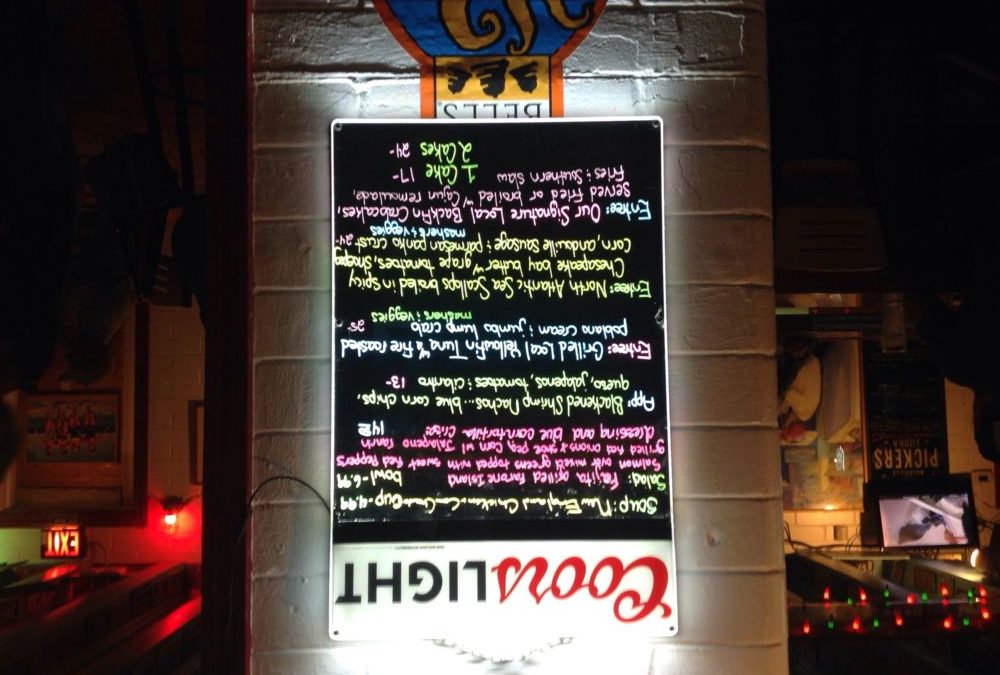 Coors LIGHT
Soup: New England Chicken Corn Chowder Cup - 4.99
bowl - 6.99
Salad: Fajita grilled Faroe Island
Salmon over mixed greens topped with sweet Red Peppers
grilled red onions & snow pea, Corn w/ Jalapeno ranch
dressing and blue corn tortilla Crisps
14
App: Blackened Shrimp Nachos... blue corn chips,
queso, jalapenos, tomatoes & cilantro 13-
Entree: Grilled Local Yellowfin Tuna w/ fire roasted
poblano cream & jumbo lump crab 25
mashers & veggies
Entree: North Atlantic Sea Scallops broiled in spicy
Chesapeake bay butter w/ grape tomatoes,
Corn, andouille sausage & parmesan panko crust 24-
mashers & veggies
Entree: Our Signature Local Backfin Crabcakes,
Served fried or broiled w/ Cajun remoulade,
Fries & Southern slaw
1 Cake 17-
2 Cakes 24-
BELL'S
EXIT
PICKERS
VODKA